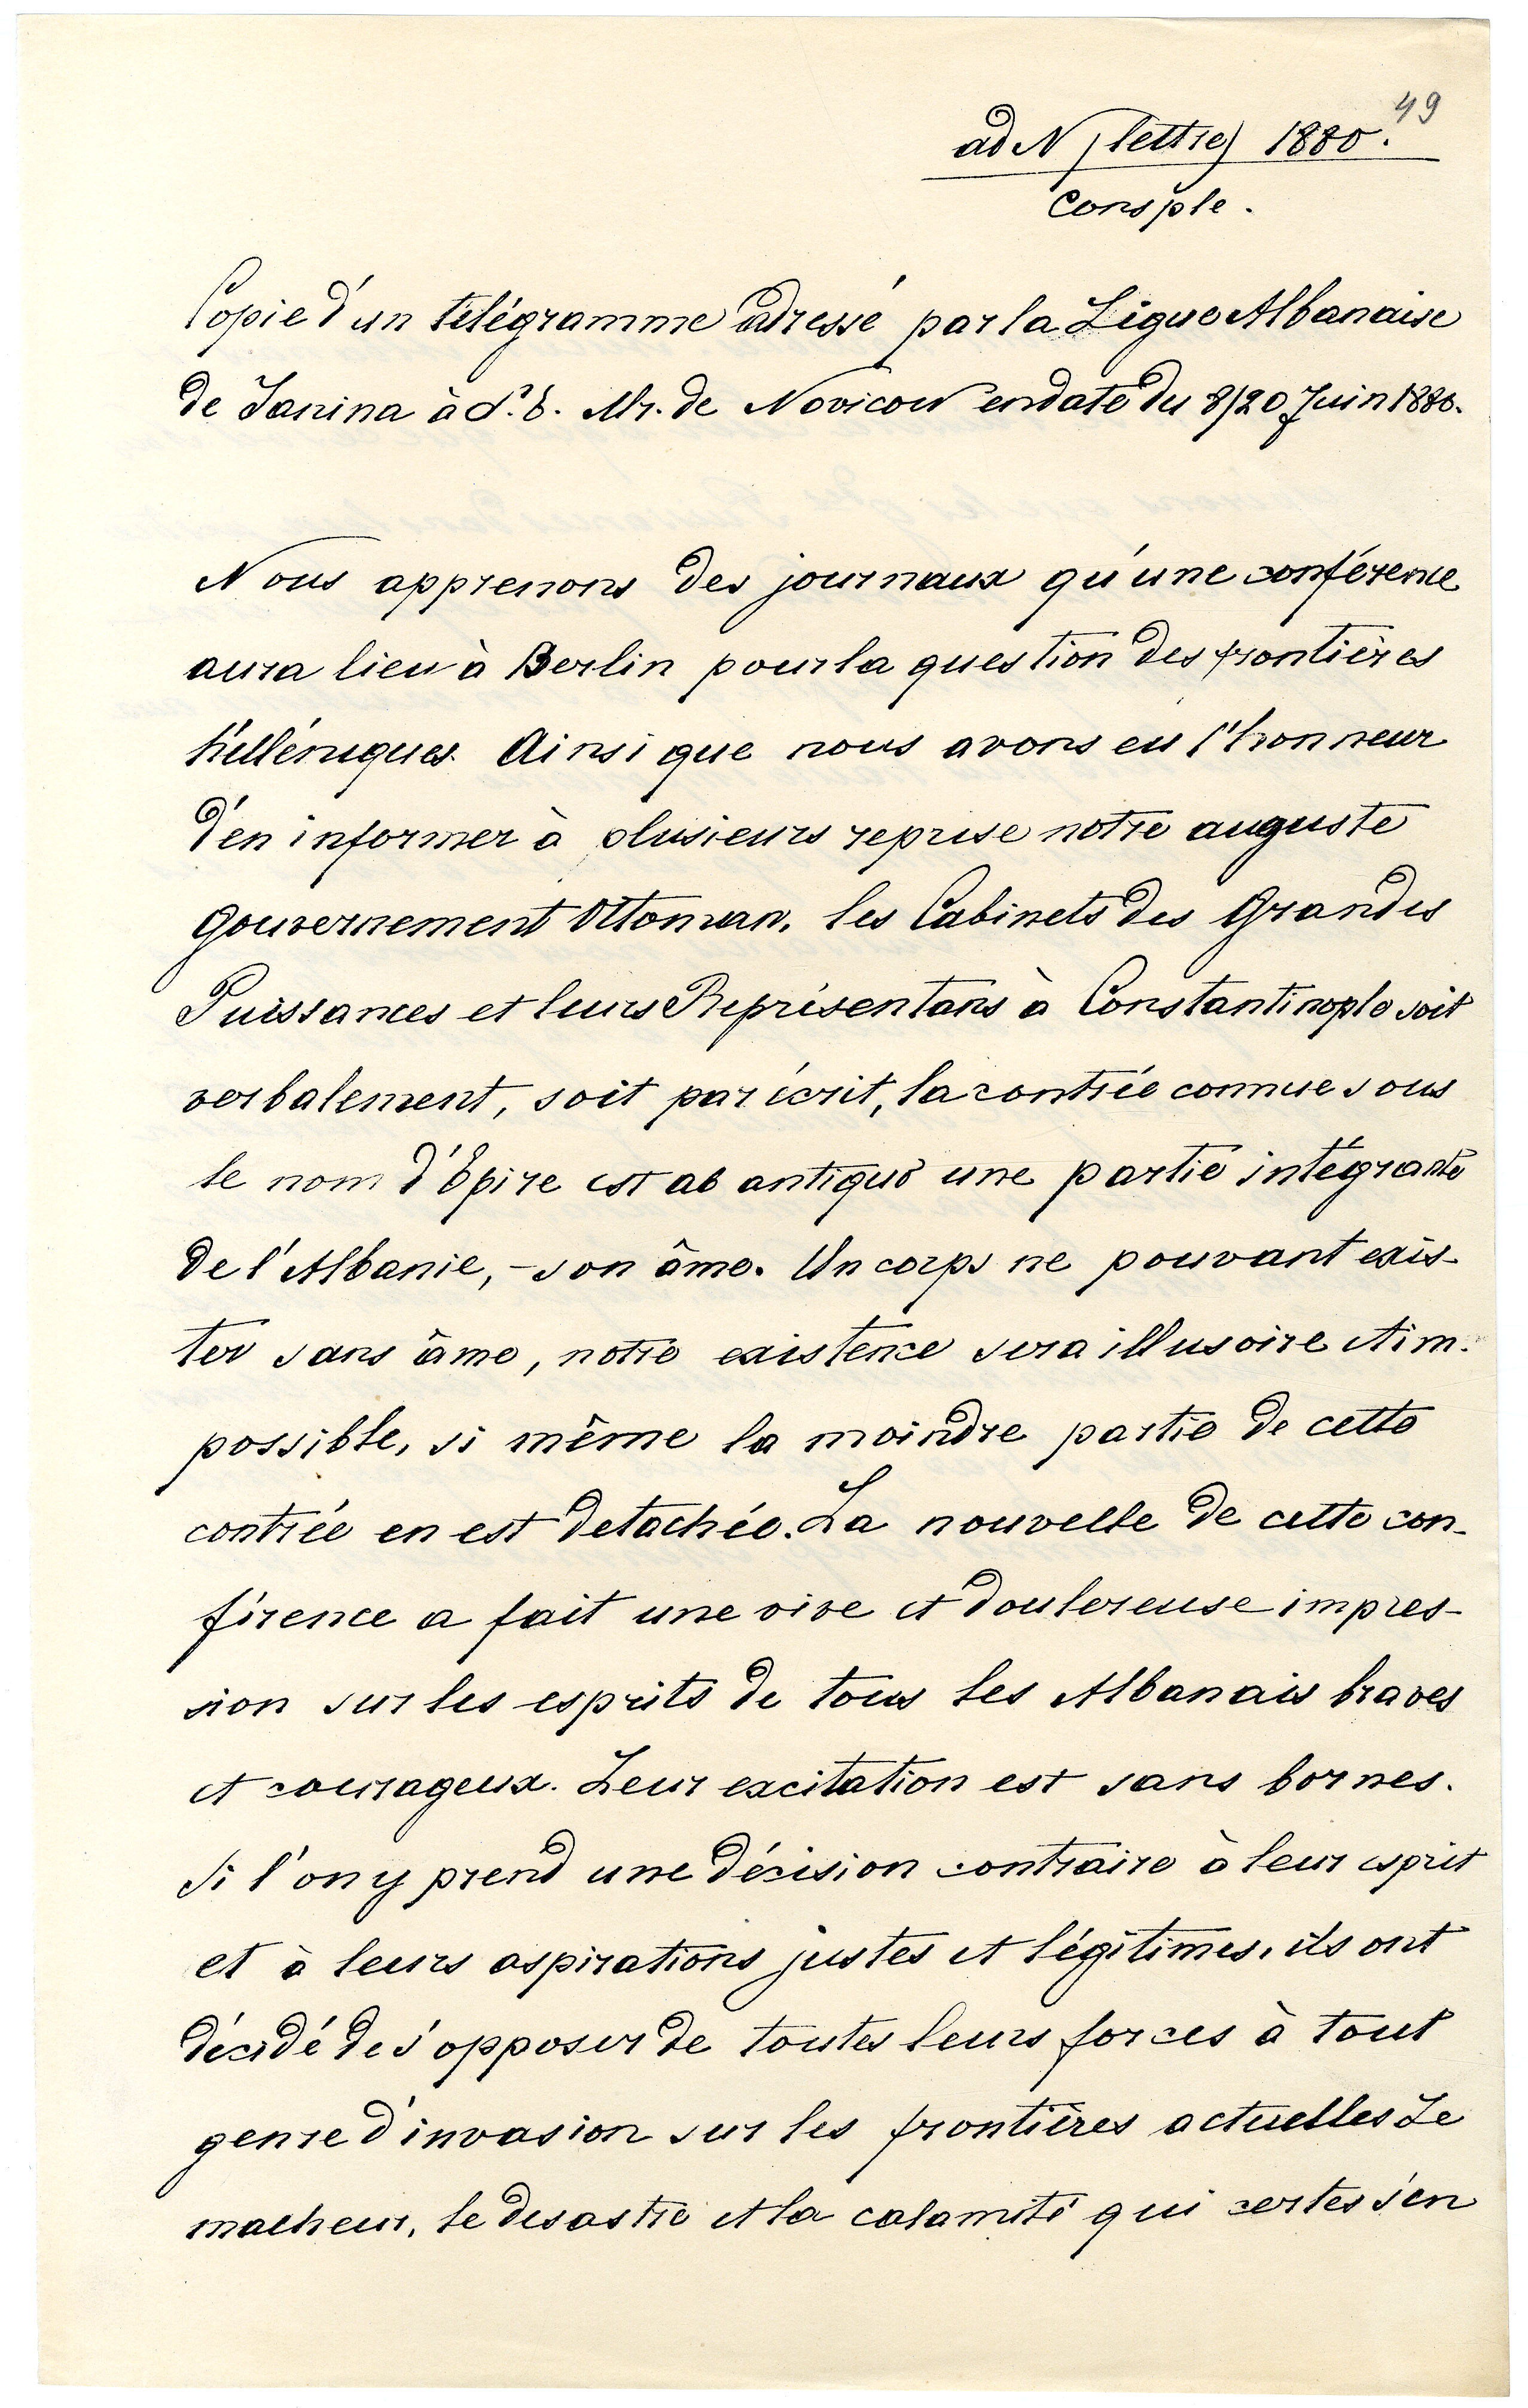 49
ad N (lettre) 1880.
Consple.
Copie d'un télégramme adressé par la Ligue Albanaise
de Janina à S. E. Mr. de Novicow en date du 8/20 Juin 1880.
Nous apprenons des journaux qu'une conférence
aura lieu à Berlin pour la question des frontières
hélléniques. Ainsi que nous avons eu l'honneur
d'en informer à plusieurs reprise notre auguste
Gouvernement Ottoman, les Cabinets des Grandes
Puissances et leurs Représentans à Constantinople soit
verbalement, soit par écrit, la contrée connue sous
le nom d'Epire est ab antiquo une partie intégrante
de l'Albanie, - son âme. Un corps ne pouvant exis-
ter sans âme, notre existence sera illusoire et im-
possible, si même la moindre partie de cette
contrée en est detachée. La nouvelle de cette con-
férence a fait une vive et doulereuse impres-
sion sur les esprits de tous les Albanais braves
et courageux. Leur excitation est sans bornes.
Si l'on y prend une décision contraire à leur esprit
et à leurs aspirations justes et légitimes, ils ont
décidé de s'opposer de toutes leurs forces à tout
genre d'invasion sur les frontières actuelles Le
malheur, le desastre et la calamité qui certes s'en